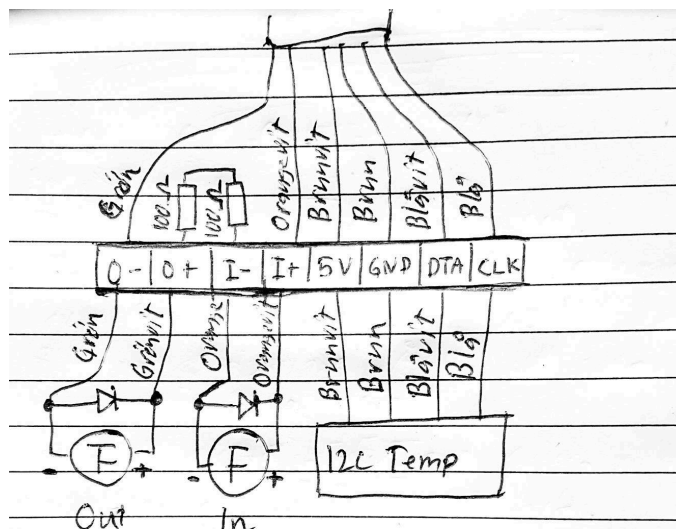 Grön 100Ω 100Ω Orangevit Brunvit Brun Blåvit Blå
O- O+ I- I+ 5V GND DTA CLK
Grön Grönvit Orange Orangevit Brunvit Brun Blåvit Blå
F F I2C Temp
- + - +
Out In